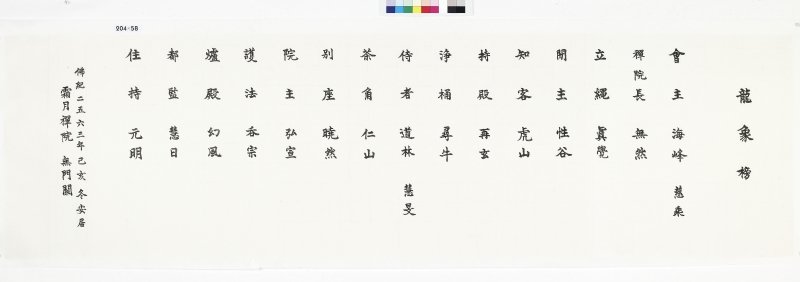 204-58
龍象榜
會主 海峰 慧乘
禪院長 無然
立繩 眞覺
閒主 性谷
知客 虎山
持殿 再玄
淨桶 尋牛
侍者 道林 慧旻
茶角 仁山
別座 曉然
院主 弘宣
護法 呑宗
爐殿 幻風
都監 慧日
住持 元明
佛紀二五六三年己亥冬安居
霜月禪院 無門關